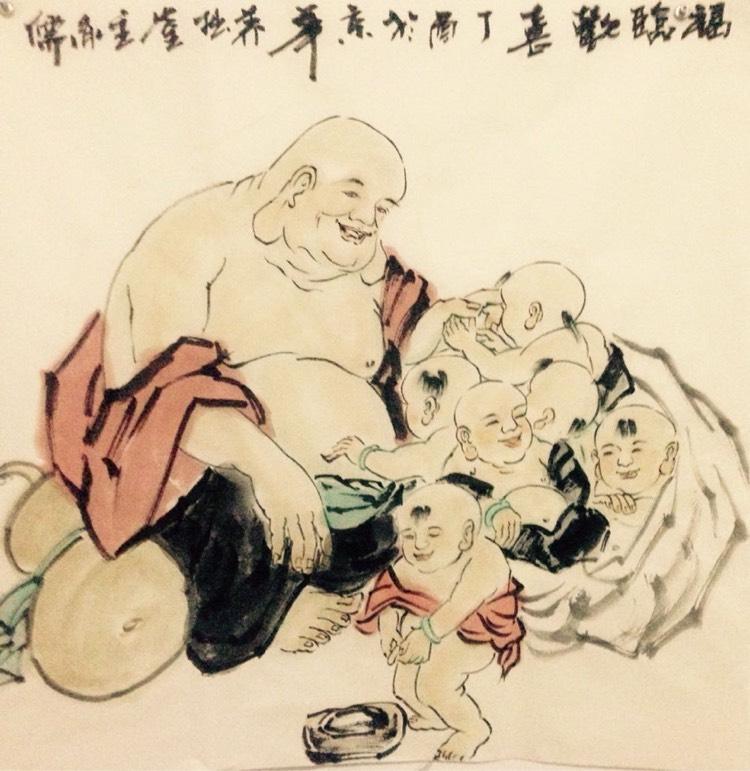 福臨歡喜丁酉於京華养拙堂主儒